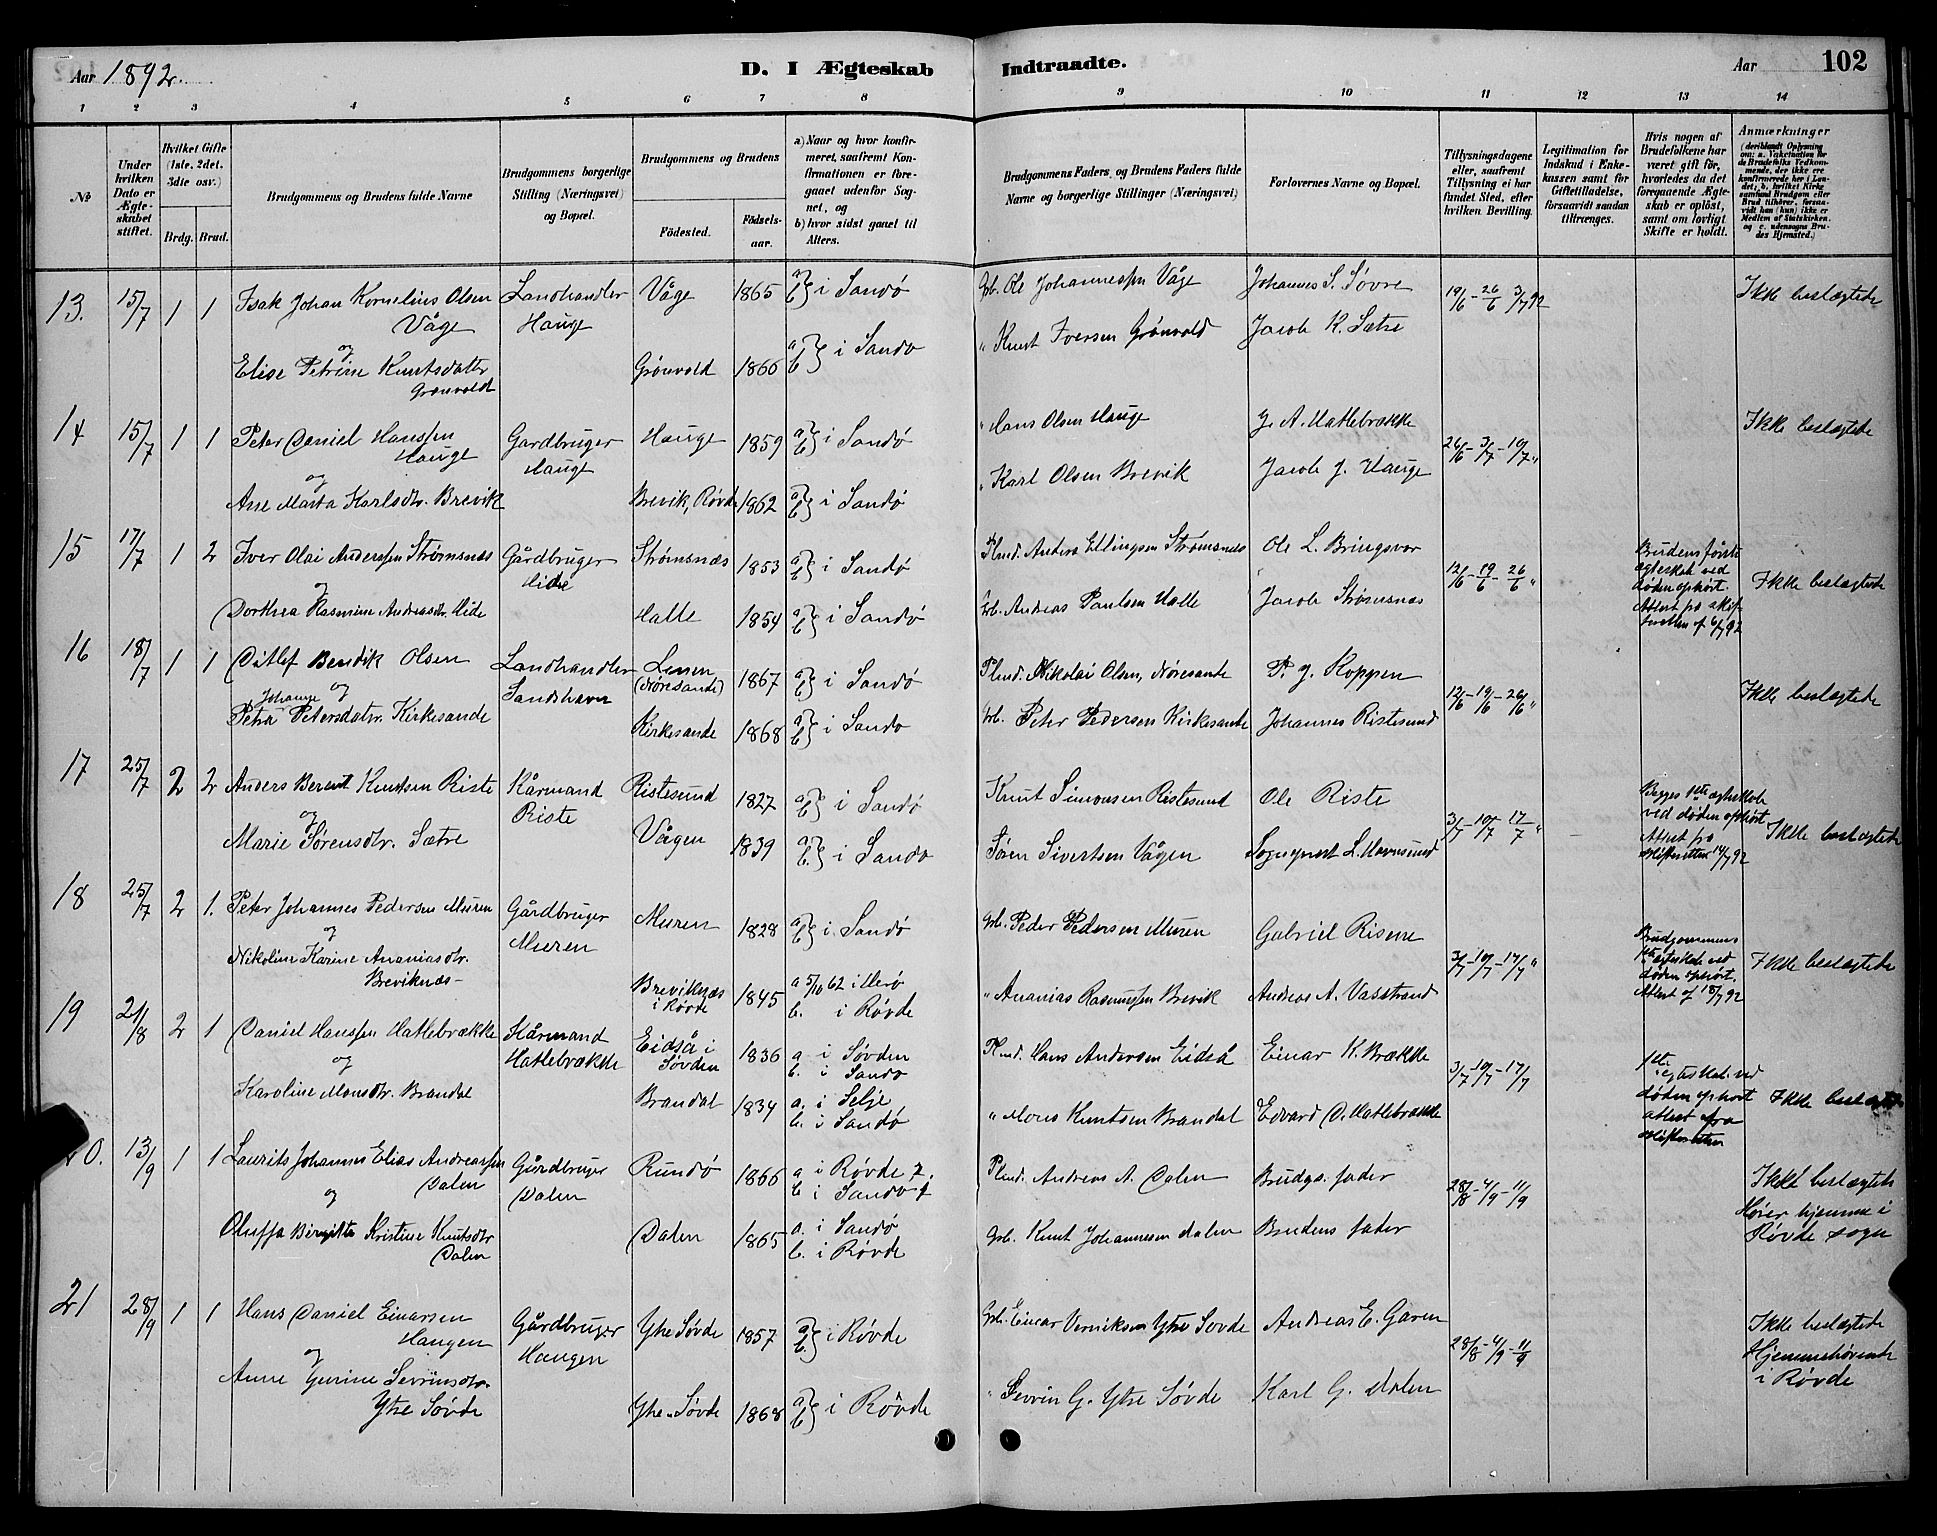 Aar 1892.
D. I Ægteskab Indtraadte.
Aar
102
1 2 3 4 5 6 7 8 9 10 11 12 13 14
No
Under hvilken Dato er Ægteskabet stiftet.
Hvilket Gifte (1ste. 2det. 3die osv.)
Brdg. Brud.
Brudgommens og Brudens fulde Navne
Brudgommens borgerlige Stilling (Næringsvei) og Bopæl.
Brudgommens og Brudens
Fødested.
Fødselsaar.
a) Naar og hvor konfirmeret, saafremt Konfirmationen er foregaaet udenfor Sognet, og
b) hvor sidst gaaet til Alters.
Brudgommens Faders, og Brudens Faders fulde Navne og borgerlige Stillinger (Næringsvei)
Forlovernes Navne og Bopæl.
Tillysningsdagene eller, saafremt Tillysning ei har fundet Sted, efter hvilken Bevilling.
Legitimation for Indskud i Enkekassen samt for Giftetilladelse, forsaavidt saadan tiltrænges.
Hvis nogen af Brudefolkene har været gift før, hvorledes da det foregaaende Ægteskab er opløst, samt om lovligt Skifte er holdt.
Anmærkninger
(deriblandt Oplysning om: a. Vakcination for de Brudefolks Vedkommende, der ikke ere konfirmerede her i Landet, b. hvilket Kirkesamfund Brudgom eller Brud tilhører, forsaavidt han (hun) ikke er Medlem af Statskirken, og c. udensogns Brudes Hjemsted.)
13. 15/7 1 1 Isak Johan Kornelius Olsen Våge Landhandler Hauge Våge 1865 a b } i Sandø Gb. Ole Johannessen Våge Johannes S. Søvre 19/6 - 26/6 3/7 92 Ikke beslægtede
og
Elise Petrine Knutsdatter Grønvold Grønvold 1866 a b } i Sandø " Knut Iversen Grønvold Jacob K. Sætre
14 15/7 1 1 Peter Daniel Hanssen Hauge Gardbruger Hauge Hauge 1859 a b } i Sandø " Hans Olsen Hauge J. A. Hatlebrække 26/6 - 3/7 - 10/7 " Ikke beslægtede
og
Ane Marta Karlsdtr. Brevik Brevik, Røvde 1862 a b } i Sandø " Karl Olsen Brevik Jacob J. Hauge
15 17/7 1 2 Iver Olai Anderssen Strømsnæs Gårdbruger Hide Strømsnæs 1853 a b } i Sandø Plmd. Anders Ellingsen Strømsnes Ole L. Bringsvor 12/6 - 19/6 - 26/6 " Brudens første ægteskab ved døden ophørt. Attest fra skifteretten af 6/7 92 Ikke beslægtede
og
Dorthea Rasmine Andreasdtr. Hide Halle 1854 a b } i Sandø Gb. Andreas Paulsen Halle Jacob Strømsnæs
16 18/7 1 1 Ditlef Bendik Olsen Landhandler Sandshavn (Nøresande) 1867 a b } i Sandø Plmd. Nikolai Olsen, Nøresande P. J. Koppen 12/6 - 19/6 - 26/6 " Ikke beslægtede
og
Petra Johanne Petersdatr. Kirkesande Kirkesande 1868 a b } i Sandø Gb. Peter Pedersen Kirkesande Johannes Ristesund
17 25/7 2 2 Anders Berent Knutsen Riste Kårmand Riste Ristesund 1827 a b } i Sandø Knut Simonsen Ristesund Ole Riste 3/7 - 10/7 17/7 " Begges 1ste ægteskab ved døden ophørt Attest fra skifteretten 14/7 92 Ikke beslægtede
og
Marie Sørensdtr. Sætre Vågen 1839 a b } i Sandø Søren Sivertsen Vågen Sogneprest L.
18 25/7 2 1. Peter Johannes Pedersen Muren Gårdbruger Muren Muren 1828 a b } i Sandø Gb. Peder Pedersen Muren Gabriel Risene 3/7 - 10/7 - 17/7 " Brudgommens 1ste ægteskab ved døden ophørt. Attest af 18/7 92 Ikke beslægtede
og
Nikoline Karine Ananiasdtr. Breviknæs - Breviknæs i Røvde 1845 a 5/10 62 i Herø b. i Røvde " Ananias Rasmussen Brevik Andreas A. Vasstrand
19 21/8 2 1 Daniel Hanssen Hatlebrække Kårmand Hatlebrække Eidså i Søvden 1836 a. i Søvden b. i Sandø Plmd. Hans Andersen Eidså Einar K. Brække 3/7 - 10/7 - 17/7 1ste ægteskab ved døden ophørt attest fra skifteretten Ikke beslægt
og
Karoline Monsdtr. Brandal Brandal 1834 a. i Selje b. i Sandø " Mons Knutsen Brandal Edvard D. Hatlebrække
20. 13/9 1 1 Laurits Johannes Elias Andreassen Dalen Gårdbruger Dalen Rundø 1866 a i Røvde b i Sandø Plmd. Andreas A. Dalen Brudgs. fader 28/8 - 4/9 - 11/9 Ikke beslægtede Hører hjemme i Røvde sogn
og
Oluffa Birgitte Kristine Knutsdtr Dalen Dalen 1865 a. i Sandø b. i Røvde Gb. Knut Johannesen Dalen Brudens fader
21 28/9 1 1 Hans Daniel Einarsen Haugen Gårdbruger Haugen Ytre Søvde 1857 a b } i Røvde Gb. Einar Verniksen Ytre Søvde Andreas E. Garen 28/8 - 4/9 - 11/9 Ikke beslægtede Hjemmehørende i Røvde
og
Anne Gurine Sevrinsdtr. Ytre Søvde Ytre Søvde 1868 a b } i Røvde " Sevrin G. Ytre Søvde Karl G. Dalen